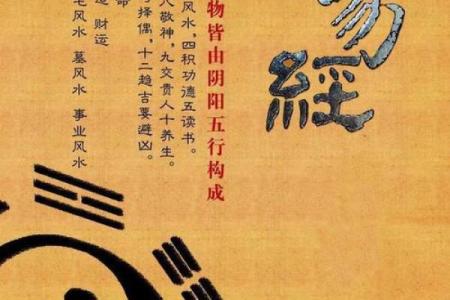 易經
物皆由阴阳五行构成
风水，四积功德五读书。
敬神，九交贵人十养生。
与择偶，十二趋吉要避凶。
命
财运
风水 墓风水 事业风水